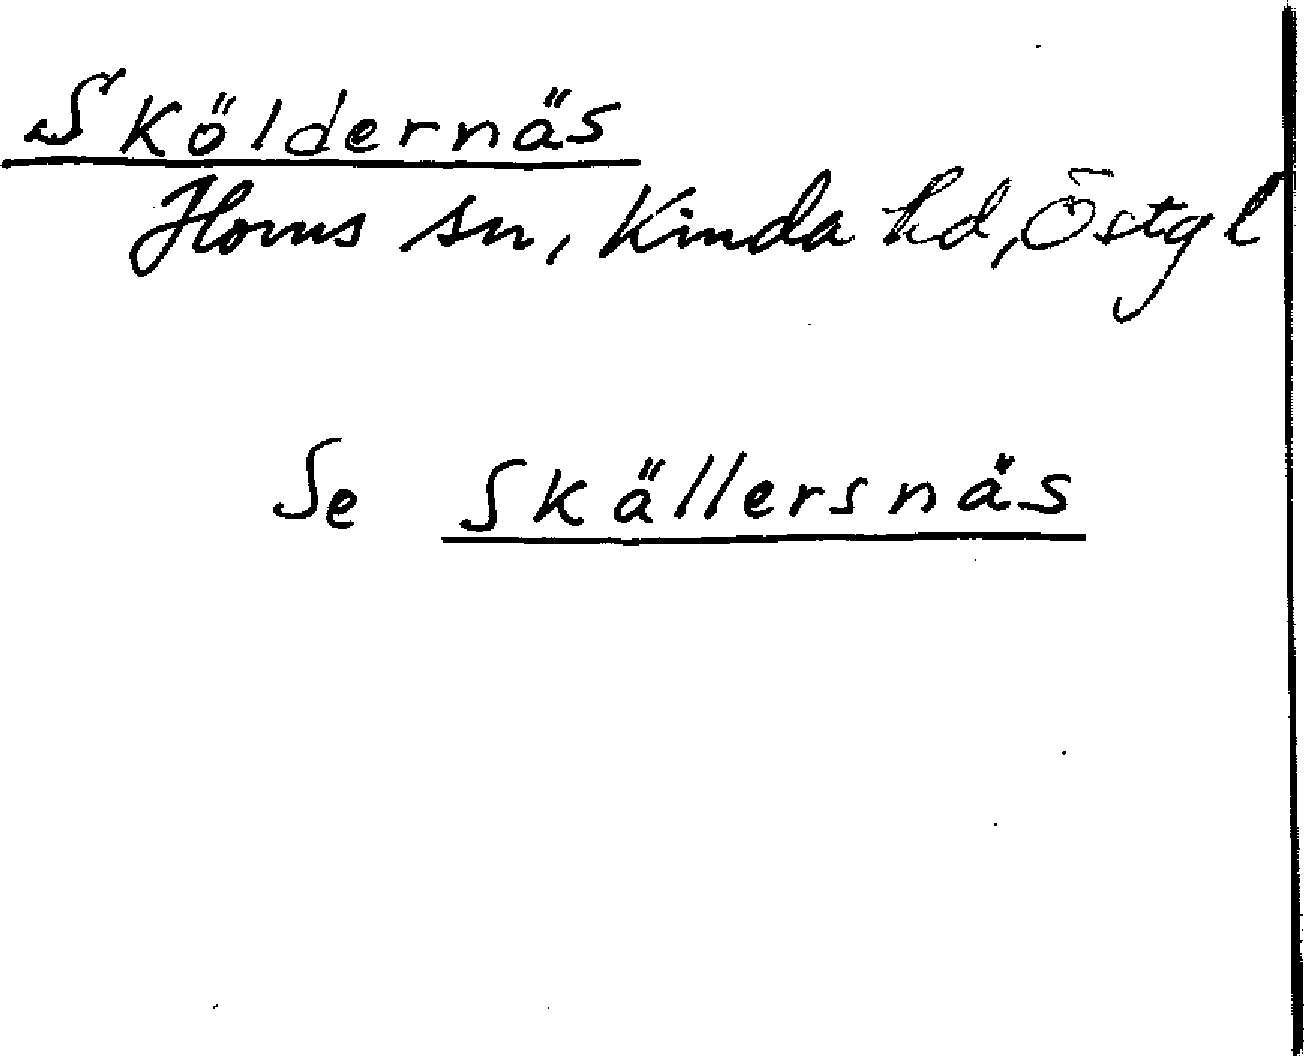 Sköldernäs
Horns sn, Kinda hd, Östgl
Se Skällersnäs